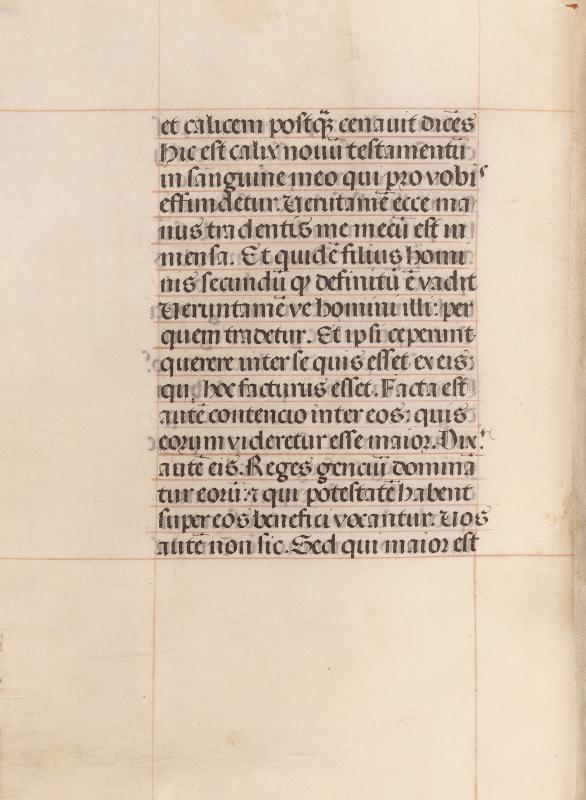 et calicem postq̃ꝫ cenauit dicẽs
Hic est calix nouũ testamentũ
in sanguine meo qui pro vobis
effundetur. Ueruntamẽ ecce ma
nus tradentis me mecũ est in
mensa. Et quidẽ filius homi
nis secundũ ꝙ definitũ ẽ vadit
Ueruntamẽ ve homini illi: per
quem tradetur. Et ipsi ceperunt
querere inter se quis esset ex eis:
qui hoc facturus esset. Facta est
autẽ contencio inter eos: quis
eorum videretur esse maior. Dix̾
autẽ eis. Reges genciũ dominã
tur eorũ: ⁊ qui potestatẽ habent
super eos benefici vocantur. Uos
autẽ non sic. Sed qui maior est